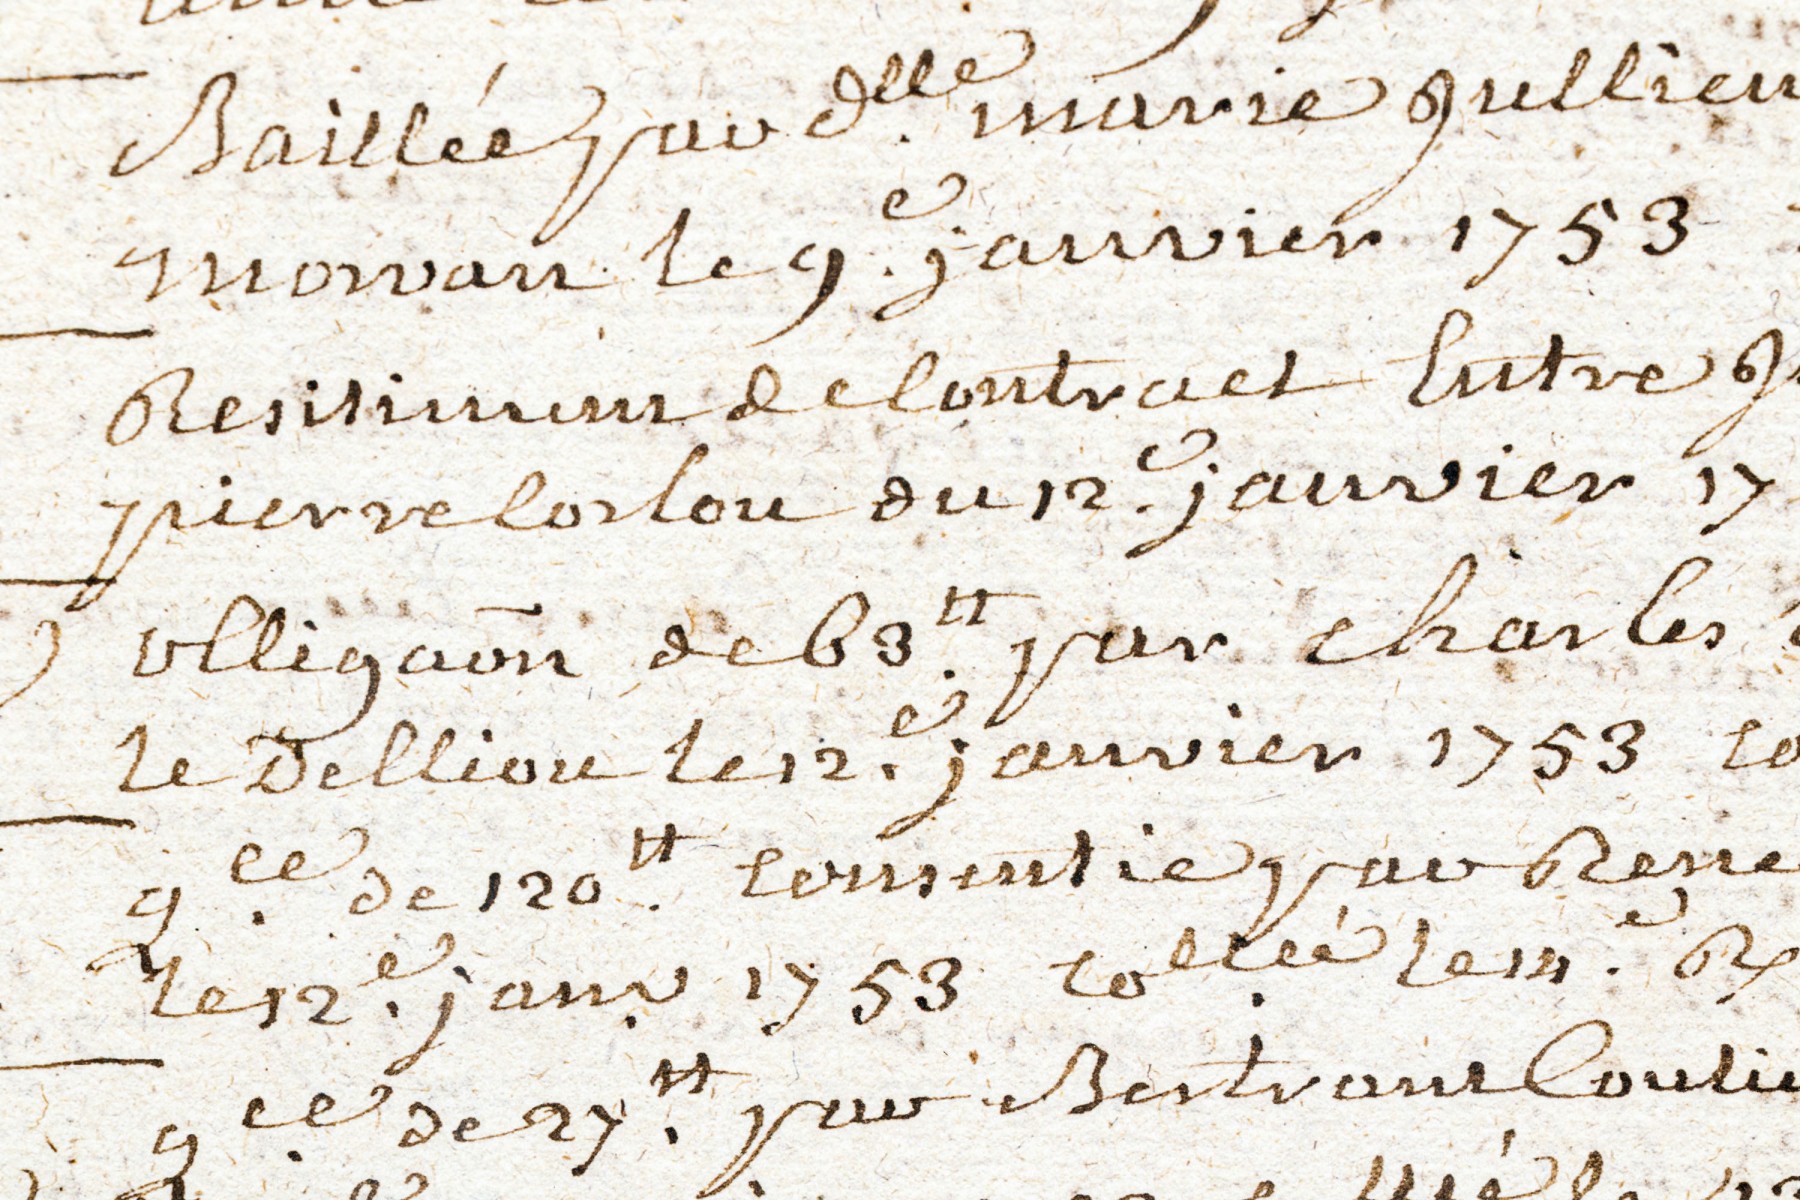 Baillée par d.lle marie Jullien
morvan le 9.e janvier 1753
Resiliment de Contract Entre
pierre Corlou du 12.e janvier 17
obligaōn de 63.tt par charles
le Delliou le 12.e janvier 1753 co
q.ce de 120.tt consentie par Rene
le 12.e janv. 1753 co.llée le
q.ce de 27.tt par Bertrant